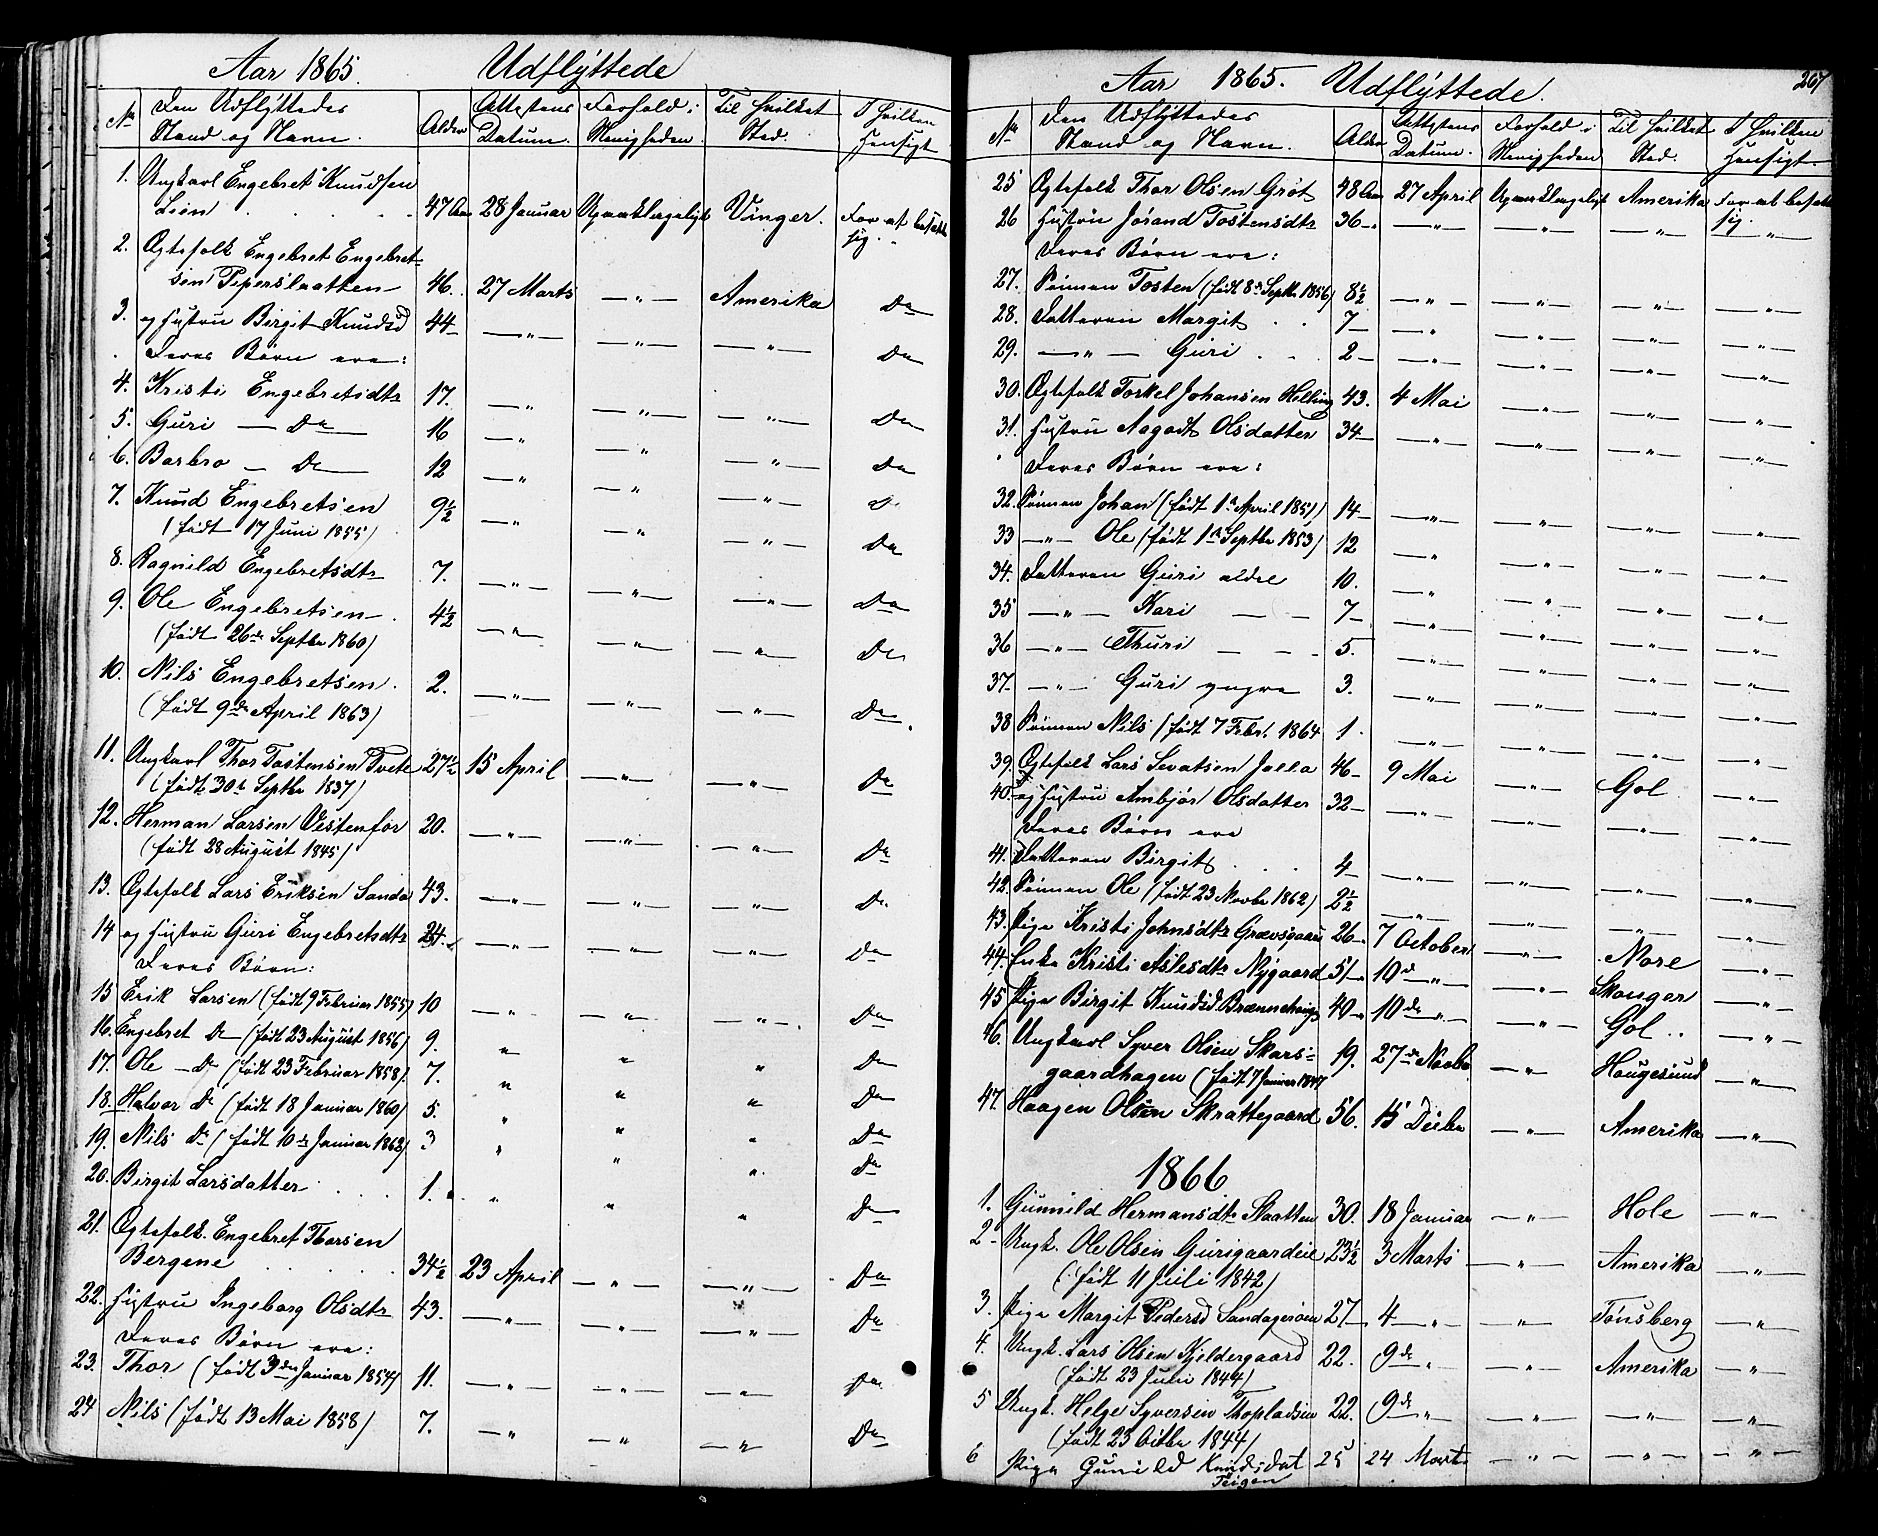 Aar 1865. Udflyttede
No Den Udflyttedes Stand og Navn. Alder Attestens Datum. Forhold i Menigheden. Til hvilket Sted. I hvilken Hensigt
1. Ungkarl Engebret Knudsen
Lien 47 Aar 28 Januar Upaaklageligt Vinger. For at besætte sig.
2. Egtefolk Engebret Engebret-
sen Piperslaatten 46. 27 Marts —"— Amerika Do
3. og Hustru Birgit Knudsd 44 —"— —"— Do
Deres Børn ere:
4. Kristi Engebretsdtr 17. —"— —"— —"— Do
5. Guri — Do — 16 —"— —"— —"— Do
6. Barbro — Do — 12 —"— —"— —"— Do
7. Knud Engebretsen 9½ —"— —"— —"— Do
(født 17 Juni 1855)
8. Ragnild Engebretsdtr 7. —"— —"— —"— Do
9. Ole Engebretsen 4½ —"— —"— —"— Do
(født 26de Septbr 1860)
10. Nils Engebretsen 2. —"— —"— —"— Do
(født 9de April 1863)
11. Ungkarl Thor Tostensen Tvete 27½ 15 April —"— —"— Do
(født 30te Septbr 1837)
12. Herman Larsen Vestenfor 20. —"— —"— —"— Do
(født 28 August 1845)
13. Egtefolk Lars Eriksen Sando 43. —"— —"— —"— Do
14 og Hustru Guri Engebretsdtr 24. —"— —"— —"— Do
Deres Børn:
15 Erik Larsen (født 9 Februar 1855) 10 —"— —"— —"— Do
16. Engebret Do (født 23 August 1856) 9. " " " Do
17. Ole — Do (født 23 Februar 1858) 7. " " " Do
18. Halvor Do (født 18 Januar 1860) 5. " " " Do
19. Nils Do (født 10de Januar 1862) 3 " " " Do
20. Birgit Larsdatter 1. " " " Do
21. Egtefolk Engebret Thorsen
Bergene 34½ 23 April —"— —"— Do
22. Hustru Ingeborg Olsdtr 43. —"— —"— —"— Do
Deres Børn ere:
23. Thor (født 3den Januar 1854) 11. —"— —"— —"— Do
24 Nils (født 13 Mai 1858) 7. —"— —"— —"— Do
Aar 1865. Udflyttede. 267
No Den Udflyttedes Stand og Navn. Alder Attestens Datum. Forhold i Menigheden Til hvilket Sted. I hvilken Hensigt.
25 Egtefolk Thor Olsen Grøt 48 Aar 27 April Upaaklageligt Amerika For at besætte sig
26 Hustru Jørand Tostensdtr 36 —"— —"— —"— "
Deres Børn ere:
27. Sønnen Tosten (født 8de Septbr 1856) 8½ —"— —"— —"— —"—
28. Datteren Margit 7 —"— —"— —"— —"—
29. —"— Guri 2 —"— —"— —"— —"—
30. Egtefolk Torkel Johansen Helling 43. 4 Mai —"— —"— —"—
31. Hustru Aagodt Olsdatter 34 —"— —"— —"— —"—
Deres Børn ere:
32. Sønnen Johan (født 1ste April 1851) 14 —"— —"— —"— —"—
33 —"— Ole (født 1ste Septbr 1853) 12 —"— —"— —"— —"—
34. Datteren Guri ældre 10. —"— —"— —"— —"—
35 —"— Kari 7 —"— —"— —"— —"—
36 —"— Thuri 5. —"— —"— —"— —"—
37 —"— Guri yngre 3. —"— —"— —"— —"—
38 Sønnen Nils (født 7 Febr. 1864 1. —"— —"— —"— —"—
39. Egtefolk Lars Sevatsen Jalla 46 9 Mai —"— Gol —"—
40. og Hustru Ambjør Olsdatter 32 —"— —"— —"— —"—
Deres Børn ere
41. Datteren Birgit 4 —"— —"— —"— —"—
42. Sønnen Ole (født 23 Novbr 1862) 2½ —"— —"— —"— —"—
43. Pige Kristi Johnsdtr Grævsgaard 26 7 October —"— Nore —"—
44. Enke Kristi Aslesdtr Nygaard 51 10de " —"— Skouger —"—
45 Pige Birgit Knudsd Brennehaug 40 10de " —"— Gol —"—
46. Ungkarl Syver Olsen Skars-
gaardhagen (født 7 Januar 1847 19. 27de Novbr —"— Haugesund —"—
47. Haagen Olsen Skrattegaard 56. 15 Decbr —"— Amerika —"—
1866
1. Gunnild Hermansdtr Slaatten 30. 18 Januar —"— Hole —"—
2 Ungk. Ole Olsen Gurigaardeie 23½ 3 Marts —"— Amerika —"—
(født 11 Juli 1842)
3. Pige Margit Pedersd Sandagerøen 27 4 " —"— Tønsberg —"—
4. Ungk. Lars Olsen Kjeldergaard 22. 9de " —"— Amerika —"—
(født 23 Juni 1844)
5 Ungk. Helge Syversen Thopladsen 22. 9de " —"— —"— —"—
(født 23 Octbr 1844)
6 Pige Gunild Knudsdat 25 24 Marts —"— —"— —"—
Teigen